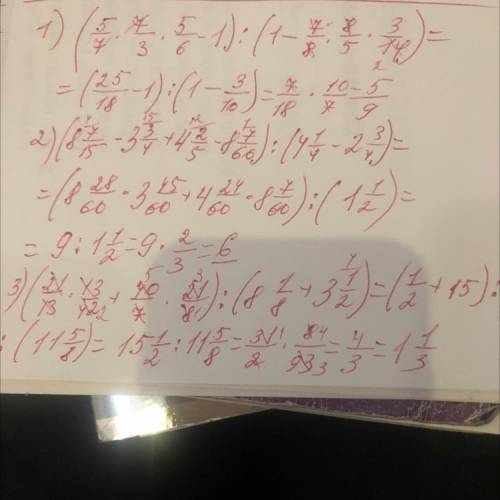 1) (5/7 · 7/3 · 5/6 - 1) : (1 - 7/8 · 8/5 · 3/14) =
= (25/18 - 1) : (1 - 3/10) = 7/18 · 10/7 = 5/9
2) (8 7/15 - 3 3/4 + 4 2/5 - 8 7/60) : (4 1/4 - 2 3/4) =
= (8 28/60 - 3 45/60 + 4 24/60 - 8 7/60) : (1 1/2) =
= 9 : 1 1/2 = 9 · 2/3 = 6
3) (31/13 · 13/122 + 40/7 · 21/81) : (8 1/8 + 3 1/2) = (1/2 + 15) :
: (11 5/8) = 15 1/2 : 11 5/8 = 31/2 · 84/93 = 4/3 = 1 1/3